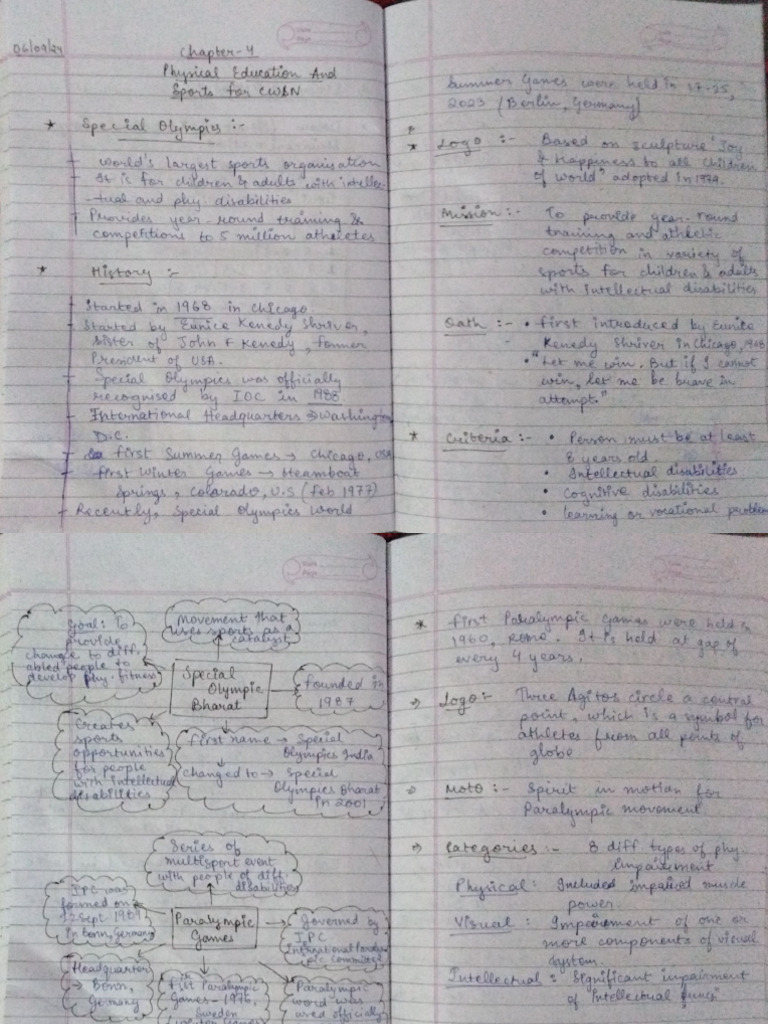 06/09/24
Chapter-4
Physical Education And
Sports for CWSN
* Special Olympics :-
- World's largest sports organisation
- It is for children & adults with intellec-
-tual and phy. disabilities
- Provides year-round training &
competitions to 5 million athletes
* History :-
- Started in 1968 in Chicago
- Started by Eunice Kenedy Shriver,
sister of John F Kenedy, former
President of USA.
- Special Olympics was officially
recognised by IOC in 1988
- International Headquarters → Washington
D.C.
- first Summer Games → Chicago, USA
- first Winter Games → Steamboat
Springs, Colarado, U.S (Feb 1977)
- Recently, Special Olympics World
Summer Games were held in 17-25,
2023 (Berlin, Germany)
* Logo :- Based on sculpture "Joy
& Happiness to all Children
of world" adopted in 1974.
Mission :- To provide year-round
training and athletic
competition in variety of
sports for children & adults
with Intellectual disabilities
Oath :- • first introduced by Eunice
Kenedy Shriver in Chicago, 1968
• "Let me win. But if I cannot
win, let me be brave in
attempt."
* Criteria :- • Person must be at least
8 years old.
• Intellectual disabilities
• Cognitive disabilities
• Learning or vocational problem
Goal: To
provide
change to diff.
abled people to
develop phy. fitness
Movement that
uses sports as a
catalyst
Special
Olympic
Bharat
founded in
1987
Creates
sports
opportunities
for people
with intellectual
disabilities
first name → Special
Olympics India
changed to → Special
Olympics Bharat
in 2001
Series of
multisport event
with people of diff.
disabilities
IPC was
formed on
22 Sept 1989
in Bonn, Germany
Paralympic
Games
Governed by
IPC
International Paralym
pic Committee
Headquarter
→ Bonn,
Germany
first Paralympic
Games - 1976,
Sweden
Winter Games
Paralympic
word was
used officially
* first Paralympic Games were held in
1960, Rome. It is held at gap of
every 4 years.
→ Logo :- Three Agitos circle a central
point, which is a symbol for
athletes from all points of
globe
→ Moto :- Spirit in motion for
Paralympic movement
→ Categories :- 8 diff. types of phy.
Impairement
Physical : Includes impaired muscle
power.
Visual : Impairement of one or
more components of visual
system.
Intellectual : Significant impairment
of Intellectual funcn